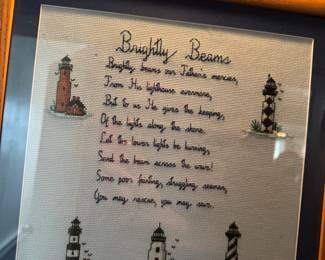 Brightly Beams
Brightly beams our Father's mercies,
From His lighthouse evermore,
But to us He gives the keeping,
Of the lights along the shore.
Let the lower lights be burning,
Send the beam across the wave!
Some poor fainting, struggling seaman,
You may rescue, you may save.